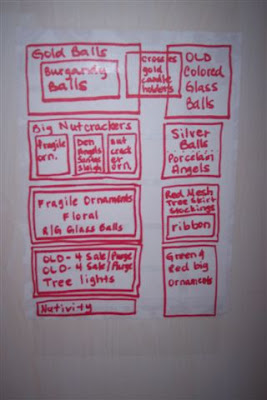 Gold Balls
Burgandy
Balls
gold
candle
holders
OLD
Colored
Glass
Balls
Big Nutcrackers
fragile
orn.
Den
Angels
Santas
Sleigh
nut
crack
er
orn
Silver
Balls
Porcelain
Angels
Fragile Ornaments
Floral
R/G Glass Balls
Red Mesh
Tree Skirt
Stockings
ribbon
OLD- 4 Sale/Purge
OLD- 4 Sale/Purge
Tree lights
Green &
Red big
ornaments
Nativity